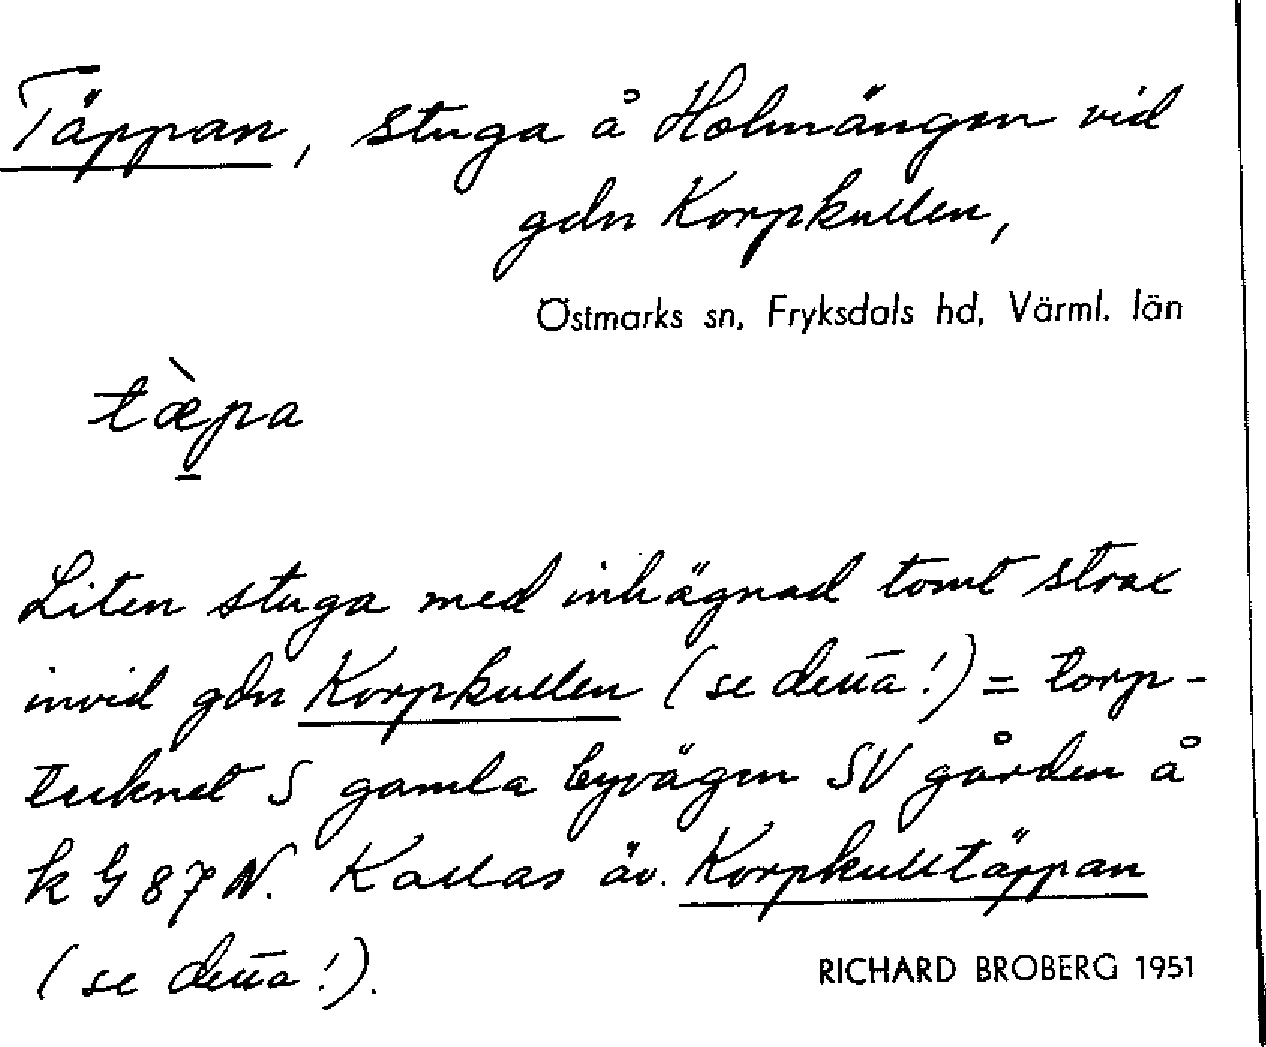 Täppan, stuga å Holmängen vid
gdn Korpkullen,
Östmarks sn, Fryksdals hd, Värml. län
tæ̀p̠a
Liten stuga med inhägnad tomt strax
invid gdn Korpkullen (se detta!) = torp-
tecknet S gamla byvägen SV gården å
k G 87 N. Kallas äv. Korpkulltäppan
(se detta!).
RICHARD BROBERG 1951